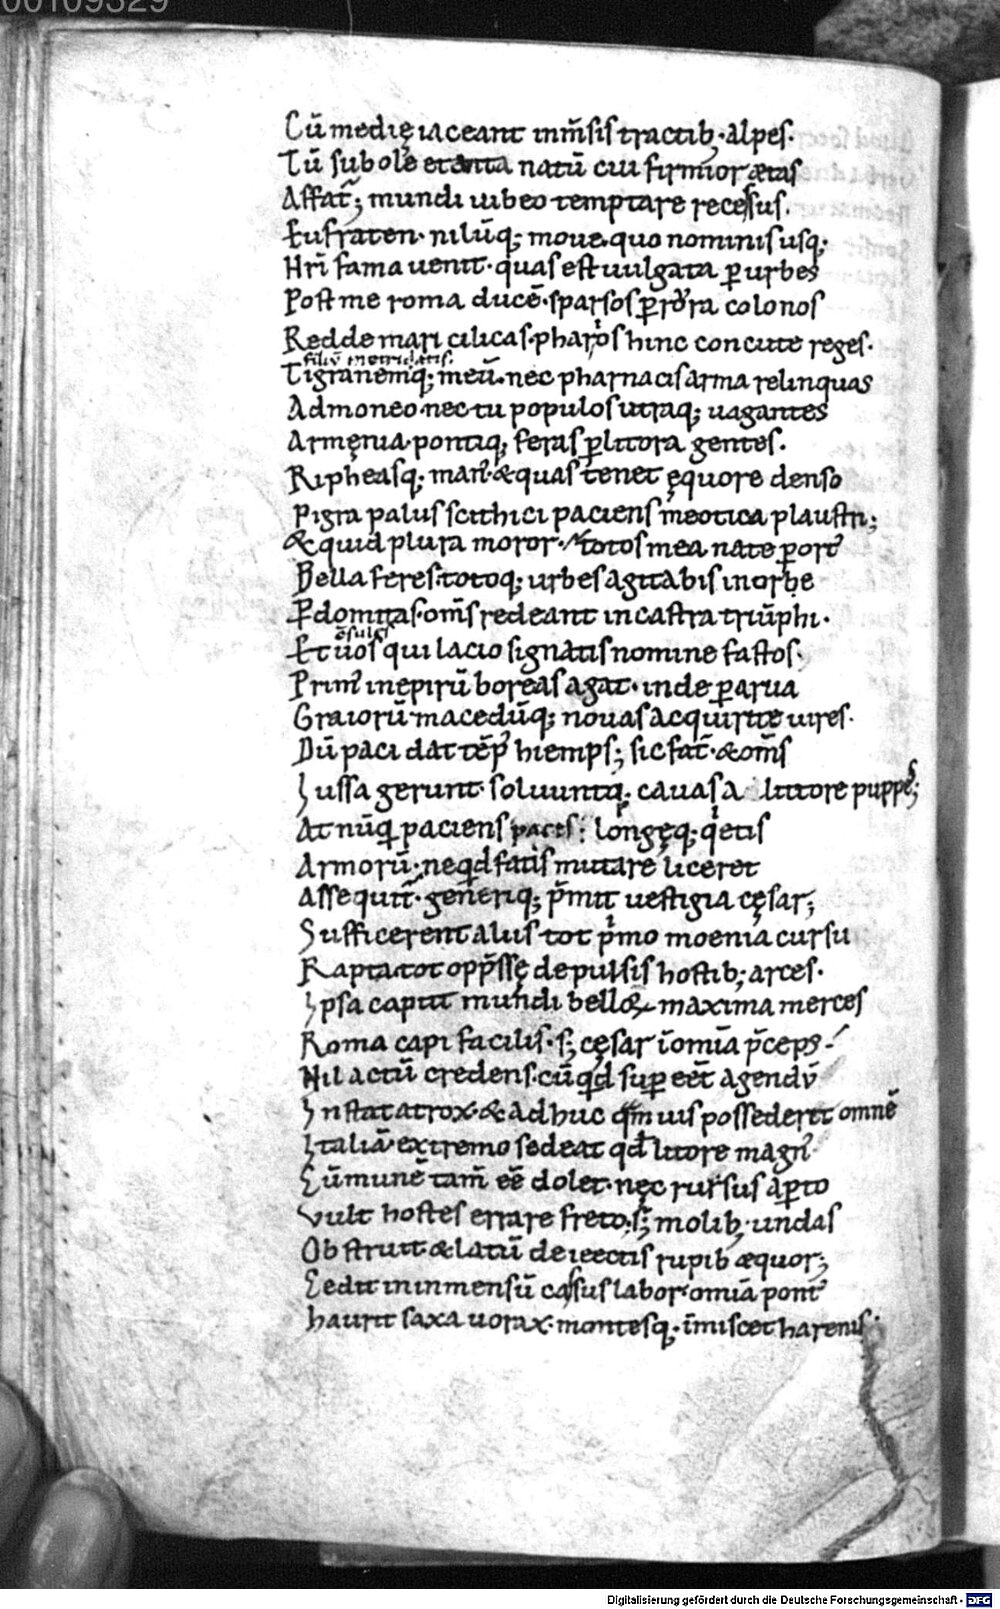 00109329
Cū medię iaceant inm̄sis tractib; alpes.
Tū subole etenta natū cui firmior ætas
Affat̄; mundi iubeo temptare recessus.
Eufraten. nilūq; moue. quo nominis usq;
Nr̄i fama uenit. quas est uulgata ꝑ urbes
Post me roma ducē. sparsos ꝑ rura colonos
Redde mari cilicas. pharios hinc concute reges.
filiū metridatis.
Tigranemq; meū. nec pharnacis arma relinquas
Admoneo. nec tu populos utraq; uagantes
Armęnia. pontiq; feras ꝑ litora gentes.
Ripheasq; man᷒. & quas tenet ęquore denso
Pigra palus scithici paciens meotica plaustri;
& quid plura moror. totos mea nate ꝑ ort᷒
Bella feres. totoq; urbes agitabis in orbe
Ꝑdomitas. om̄s redeant in castra triūphi.
c̄sules
Et uos qui lacio signatis nomine fastos.
Prim᷒ in epirū boreas agat. inde ꝑ arua
Graiorū macedūq; nouas acquirite uires.
Dū paci dat tēp᷒ hiemps; sic fat̄. & om̄s
Iussa gerunt. soluuntq; cauas a littore puppes;
At nūqᷓ paciens pacis; longęq; qⁱetis
Armorū. ne qd fatis mutare liceret
Assequit̄. generiq; p̄mit uestigia cęsar;
Sufficerent aliis tot pⁱmo moenia cursu
Rapta. tot opp̄ssę depulsis hostib; arces.
Ipsa caput mundi belloꝝ maxima merces
Roma capi facilis. s; cęsar ī omīa p̄ceps.
Nil actū credens. cū qd suꝑ eēt agendū
Instat atrox. & adhuc qm̄uis possederit omnē
Italiā. extremo sedeat qd litore magn᷒.
Cūmunē tam̄ eē dolet. nęc rursus aꝑto
Vult hostes errare freto. s; molib; undas
Obstruit. & latū deiectis rupib æquor;
Cedit in inmensū cassus labor. omīa pont᷒
haurit saxa uorax. montesq; īmiscet harenis.
Digitalisierung gefördert durch die Deutsche Forschungsgemeinschaft - DFG